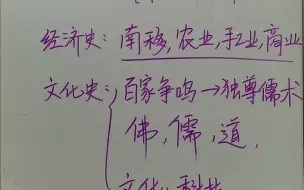 经济史：南移，农业，手工业，商业
文化史：百家争鸣→独尊儒术
佛，儒，道，